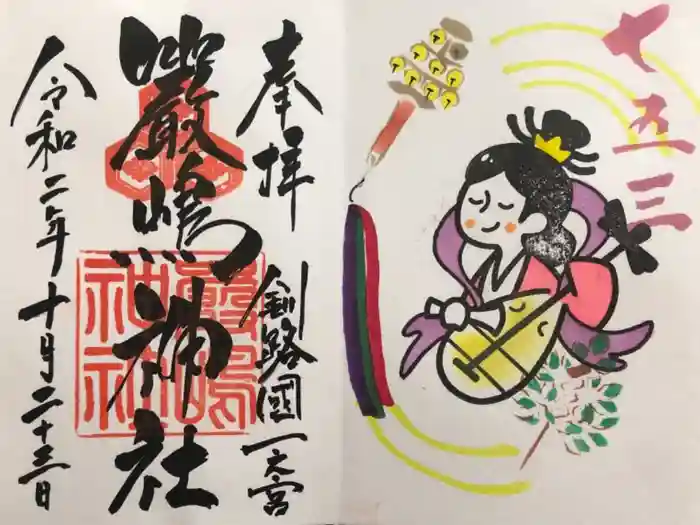 七五三
奉拝
釧路國一之宮
厳嶋神社
厳嶋
神社
令和二年十月二十三日